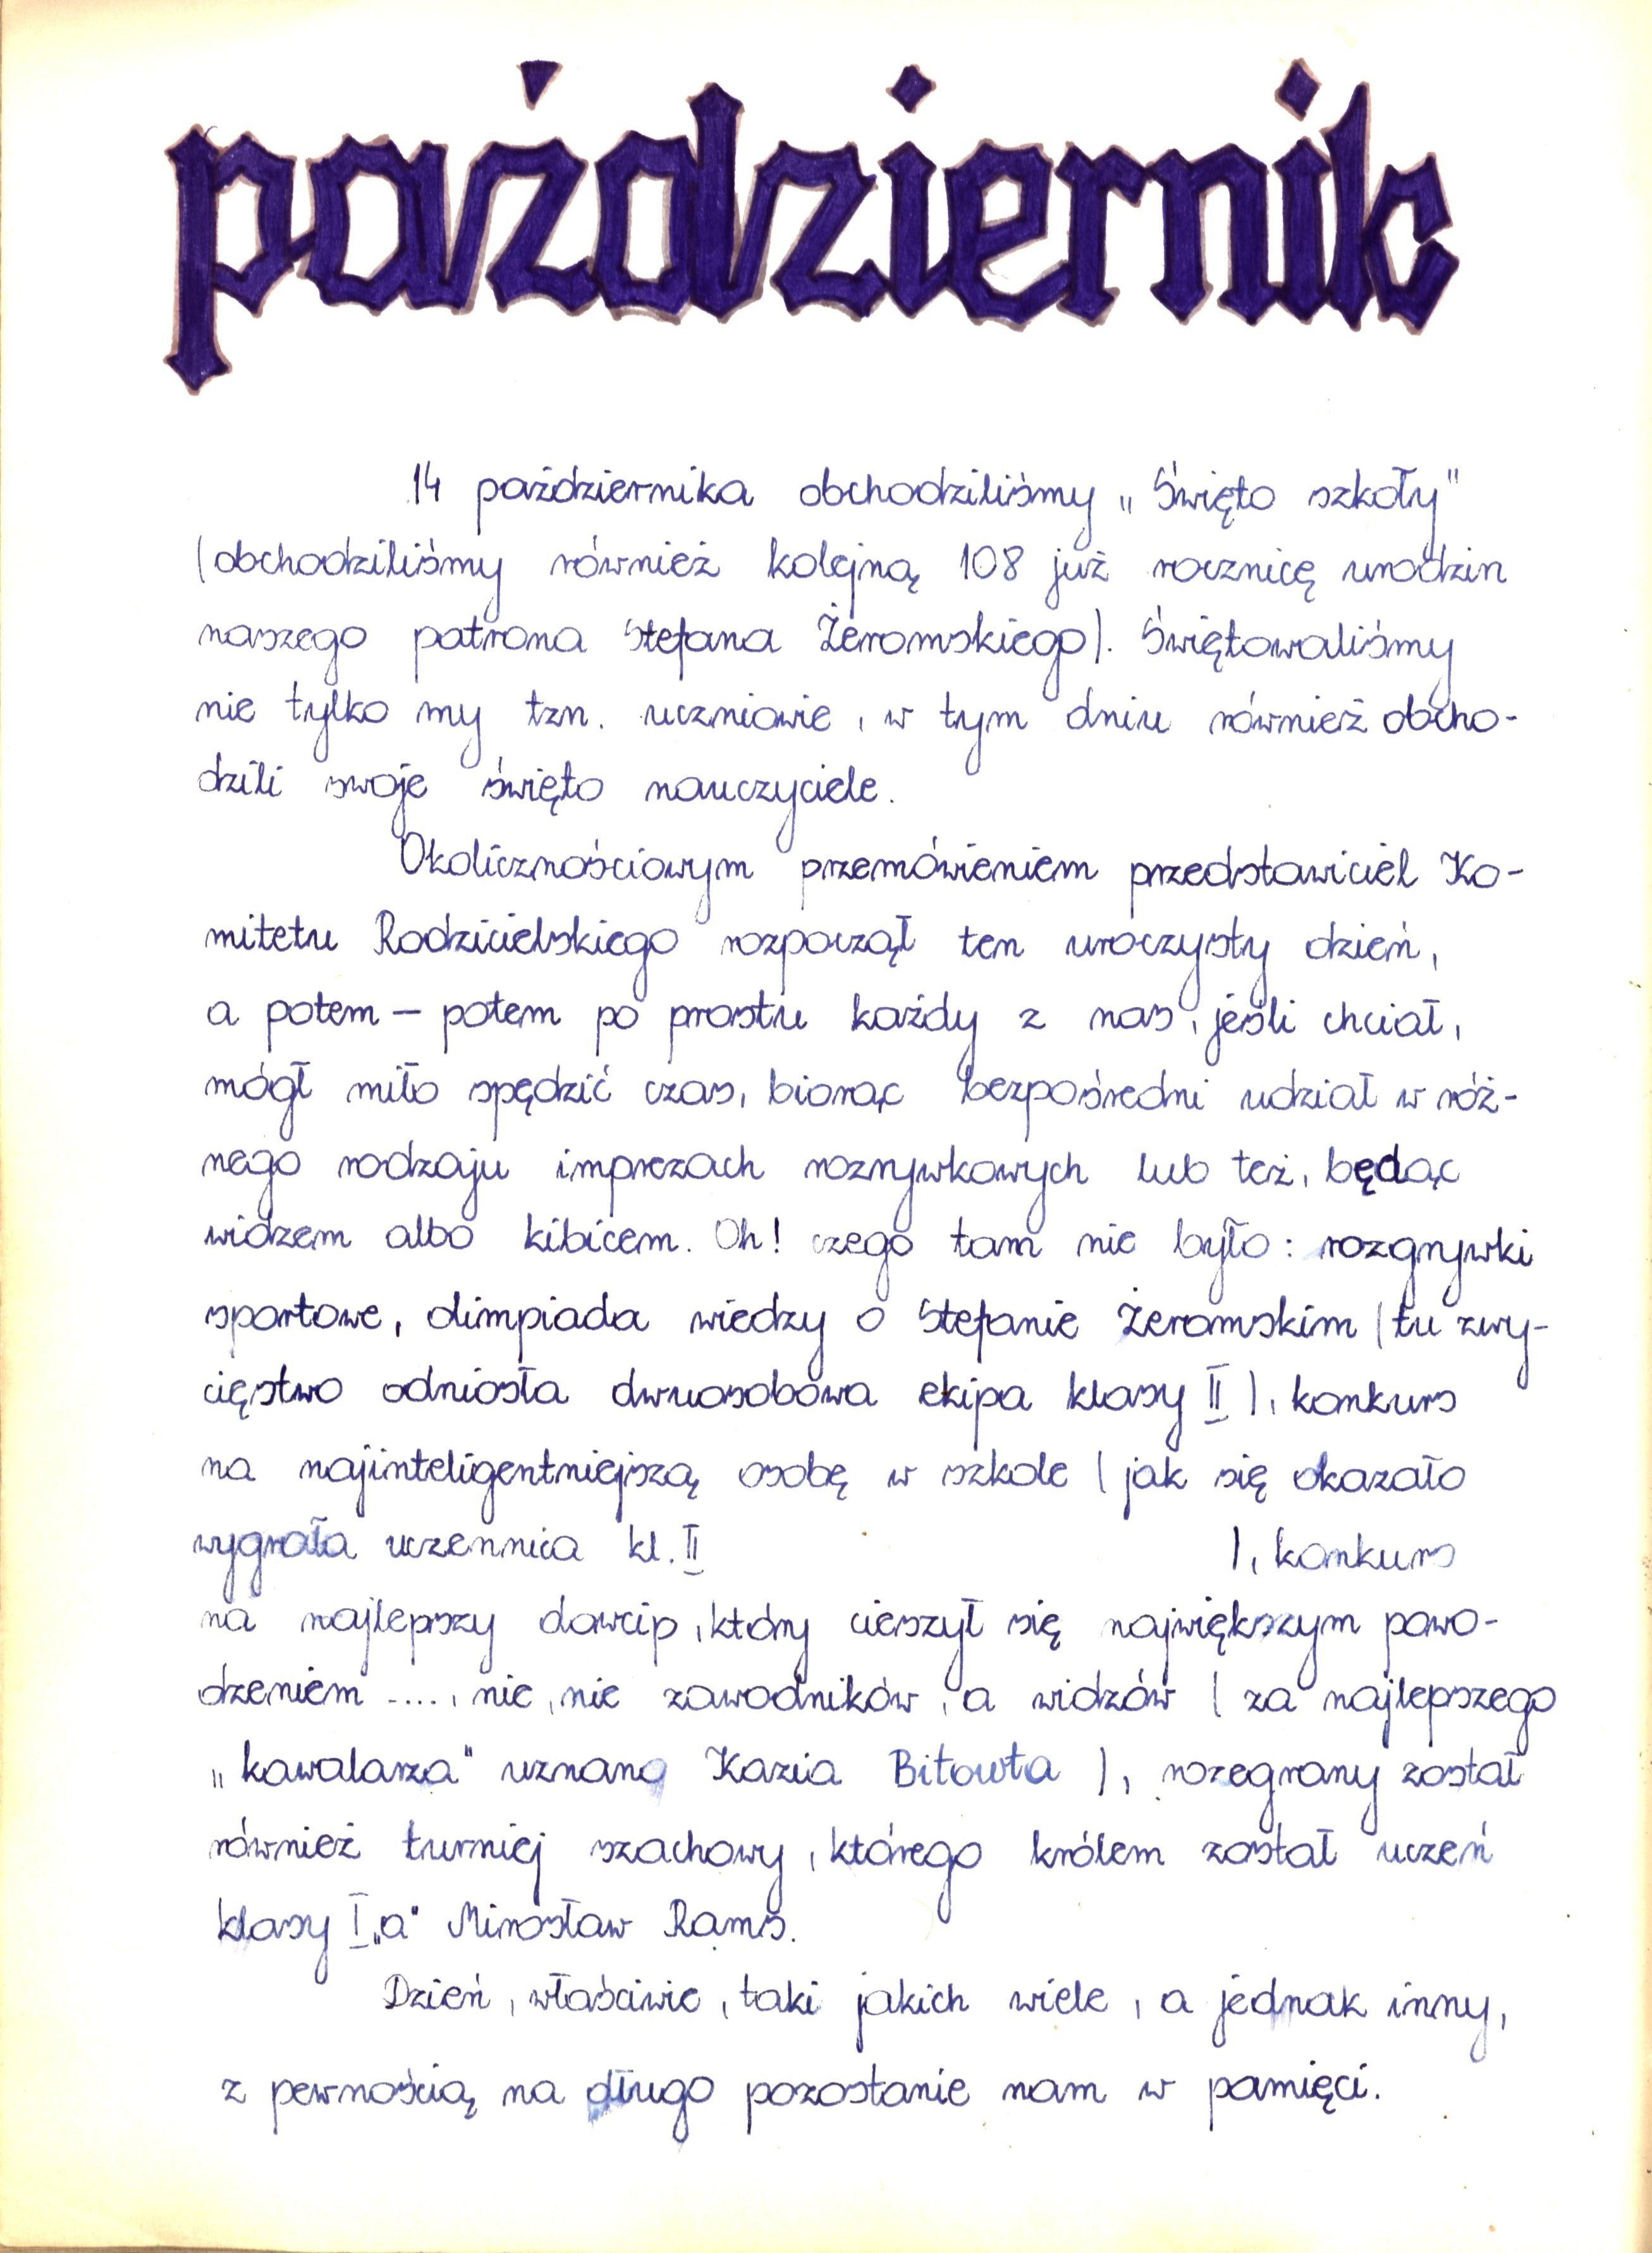 październik
14 października obchodziliśmy „Święto szkoły"
(obchodziliśmy również kolejną 108 już rocznicę urodzin
naszego patrona Stefana Żeromskiego). Świętowaliśmy
nie tylko my tzn. uczniowie, w tym dniu również obcho-
dzili swoje święto nauczyciele.
Okolicznościowym przemówieniem przedstawiciel Ko-
mitetu Rodzicielskiego rozpoczął ten uroczysty dzień,
a potem – potem po prostu każdy z nas, jeśli chciał,
mógł miło spędzić czas, biorąc bezpośredni udział w róż-
nego rodzaju imprezach rozrywkowych lub też, będąc
widzem albo kibicem. Oh! czego tam nie było: rozgrywki
sportowe, olimpiada wiedzy o Stefanie Żeromskim (tu zwy-
cięstwo odniosła dwuosobowa ekipa klasy II), konkurs
na najinteligentniejszą osobę w szkole (jak się okazało
wygrała uczennica kl. II ), konkurs
na najlepszy dowcip, który cieszył się największym powo-
dzeniem ...., nie, nie zawodników, a widzów (za najlepszego
„kawalarza" uznano Kazia Bitowta), rozegrany został
również turniej szachowy, którego królem został uczeń
klasy I „a" Mirosław Rams.
Dzień, właściwie, taki jakich wiele, a jednak inny,
z pewnością na długo pozostanie nam w pamięci.